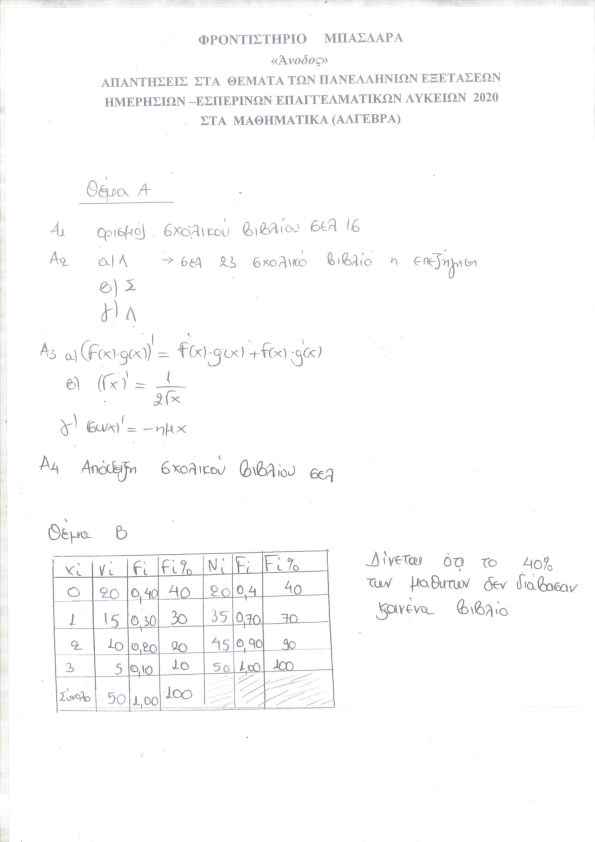 ΦΡΟΝΤΙΣΤΗΡΙΟ ΜΠΑΣΔΑΡΑ
«Άνοδος»
ΑΠΑΝΤΗΣΕΙΣ ΣΤΑ ΘΕΜΑΤΑ ΤΩΝ ΠΑΝΕΛΛΗΝΙΩΝ ΕΞΕΤΑΣΕΩΝ
ΗΜΕΡΗΣΙΩΝ –ΕΣΠΕΡΙΝΩΝ ΕΠΑΓΓΕΛΜΑΤΙΚΩΝ ΛΥΚΕΙΩΝ 2020
ΣΤΑ ΜΑΘΗΜΑΤΙΚΑ (ΑΛΓΕΒΡΑ)
Θέμα Α
Α1 ορισμός σχολικού βιβλίου σελ 16
Α2 α) Λ → σελ 23 σχολικό βιβλίο η επεξήγηση
β) Σ
γ) Λ
Α3 α) (f(x)·g(x))' = f'(x)·g(x) + f(x)·g'(x)
β) (√x)' = 1/2√x
γ) συνx)' = -ημx
Α4 Απόδειξη σχολικού βιβλίου σελ
Θέμα Β
xi νi fi fi% Ni Fi Fi%
0 20 0,40 40 20 0,4 40
1 15 0,30 30 35 0,70 70
2 10 0,20 20 45 0,90 90
3 5 0,10 10 50 1,00 100
Σύνολο 50 1,00 100
Δίνεται ότι το 40%
των μαθητων δεν διάβασαν
κανένα βιβλίο